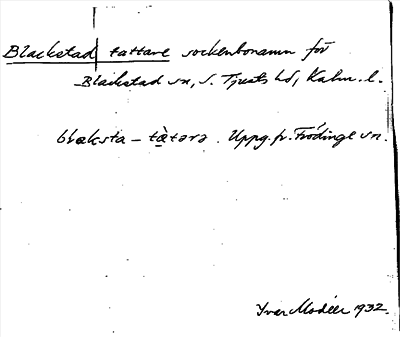 Blackstad|tattare sockenbonamn för
Blackstad sn, S. Tjusts hd, Kalm. l.
blaksta – tàtərə. Uppg. fr. Frödinge sn.
Yvar Modéer 1932.